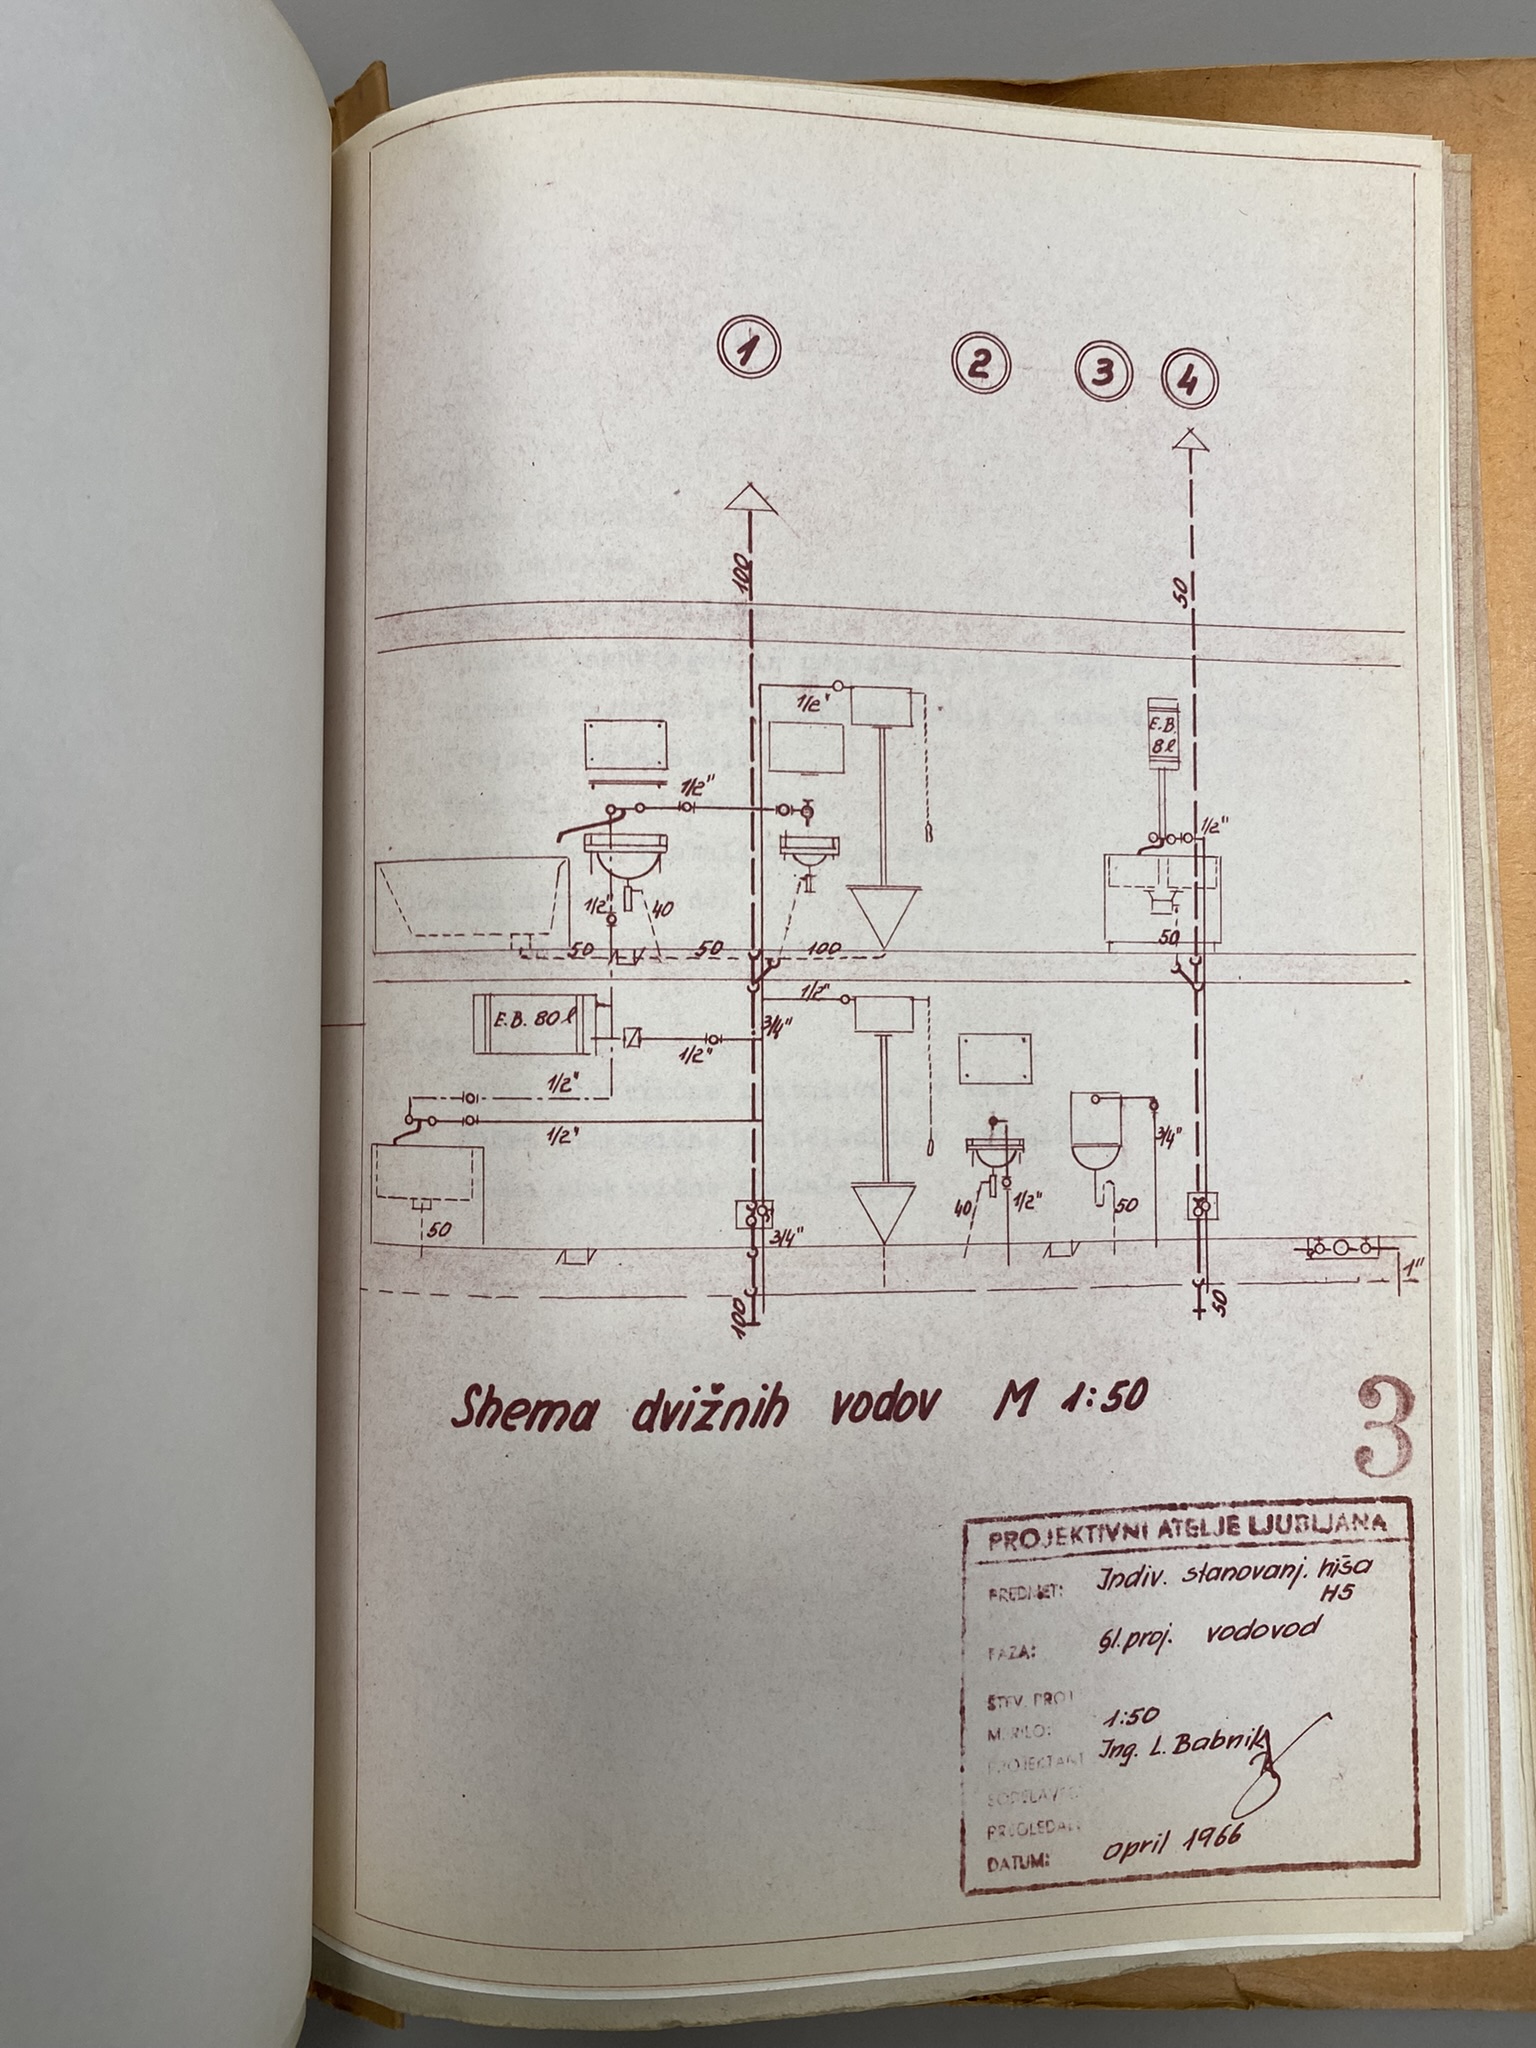 1 2 3 4
100
50
1/2"
E.B.
8l
1/2"
1/2"
1/2"
40
50
50
100
50
E.B. 80l
1/2"
3/4"
1/2"
1/2"
1/2"
3/4"
50
40
1/2"
50
3/4"
1"
100
50
Shema dvižnih vodov M 1:50
3
PROJEKTIVNI ATELJE LJUBLJANA
PREDMET: Indiv. stanovanj. hiša
H5
FAZA: Gl. proj. vodovod
ŠTEV. PROJ
MERILO: 1:50
PROJEKTANT Ing. L. Babnik
SODELAVEC:
PREGLEDAL:
DATUM: april 1966